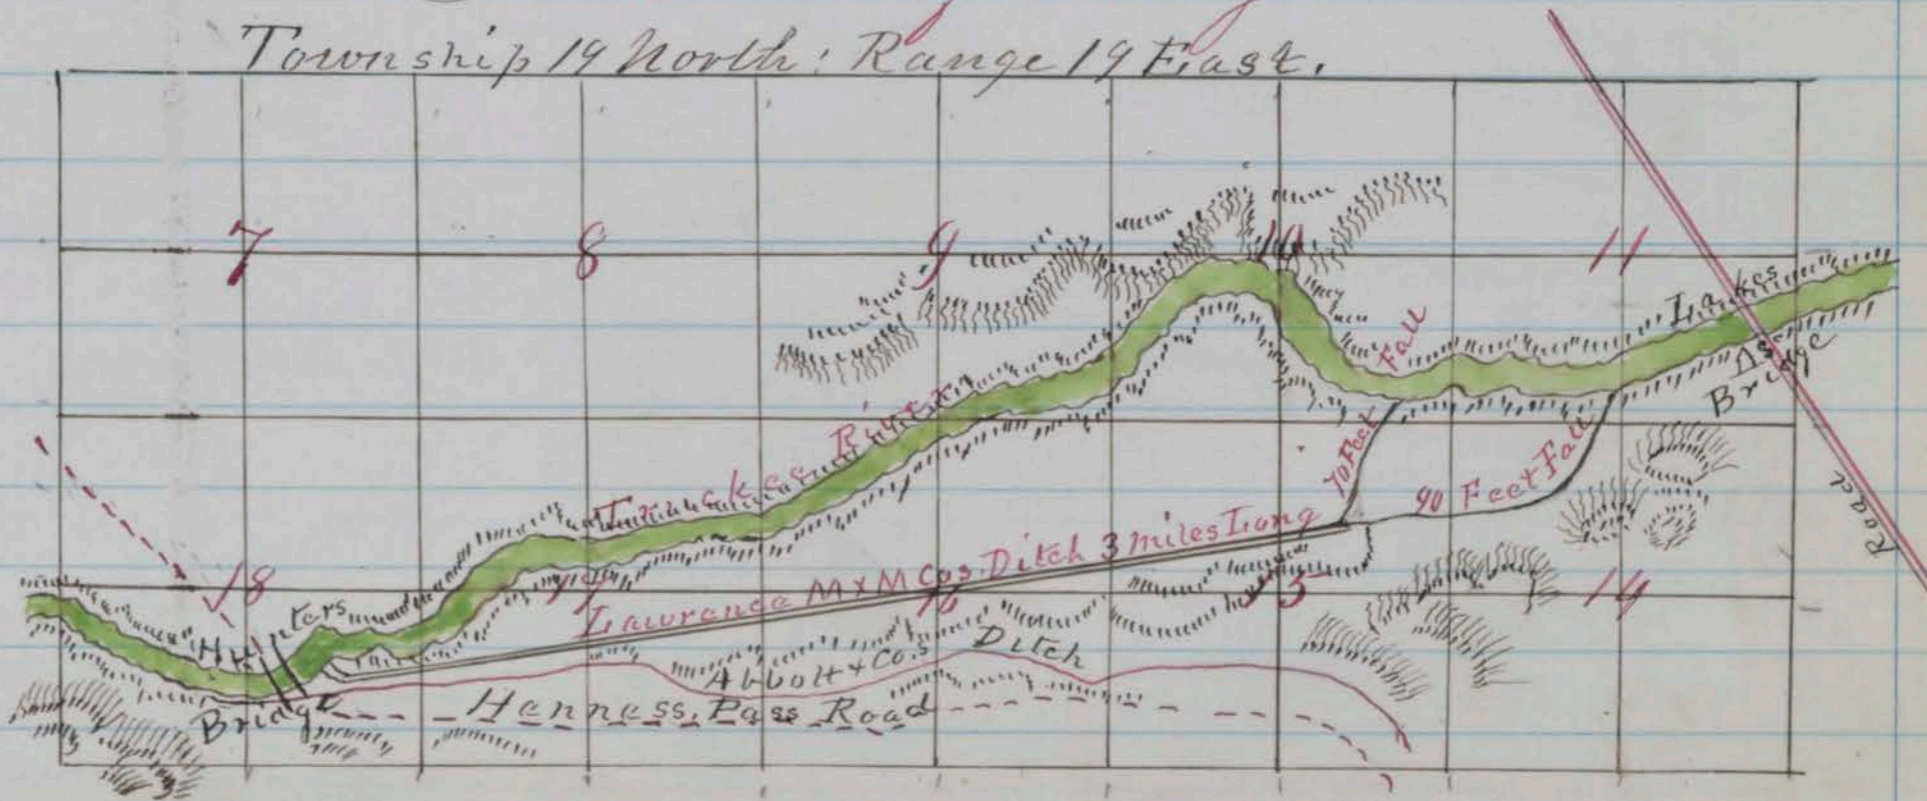 Township 19 North: Range 19 East.
7
8
9
10
11
Lakes
Bridge
Fall
Truckee River
70 Feet
90 Feet Fall
Road
Lawrence M & M Cos. Ditch 3 miles Long
18
17
16
15
14
Hunters
Bridge
Abbott & Co.s Ditch
Henness Pass Road